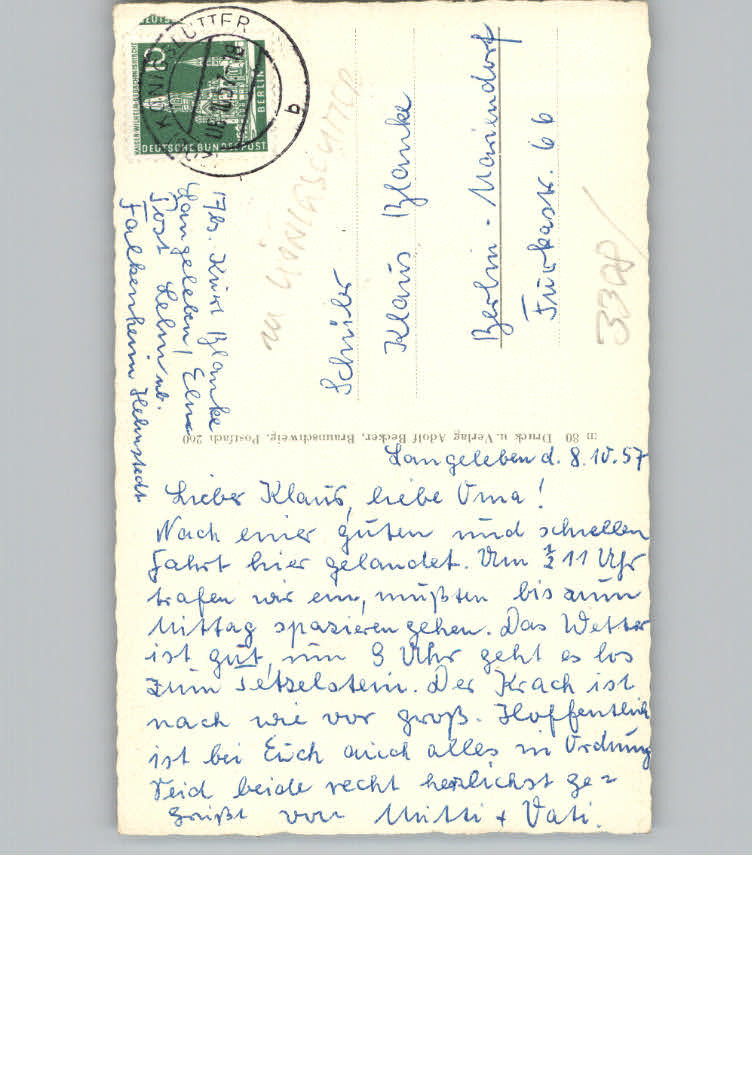 Langeleben d. 8.10.57
Lieber Klaus, liebe Oma!
Nach einer guten und schnellen
Fahrt hier gelandet. Um ½ 11 Uhr
trafen wir ein, mußten bis zum
Mittag spazieren gehen. Das Wetter
ist gut, um 3 Uhr geht es los
zum Tetzelstein. Der Krach ist
nach wie vor groß. Hoffentlich
ist bei Euch auch alles in Ordnung
Seid beide recht herzlichst ge=
grüßt von Mutti + Vati.
Schüler
Klaus Blanke
Berlin-Mariendorf
Furkastr. 66
Kurt Blanke
Langeleben / Elm
Post Lelm üb.
Falkenheim Helmstedt
m 80 Druck u. Verlag Adolf Becker, Braunschweig, Postfach 260
KÖNIGSLUTTER
3308
DEUTSCHE BUNDESPOST
BERLIN
10
KAISER-WILHELM-GEDÄCHTNISKIRCHE